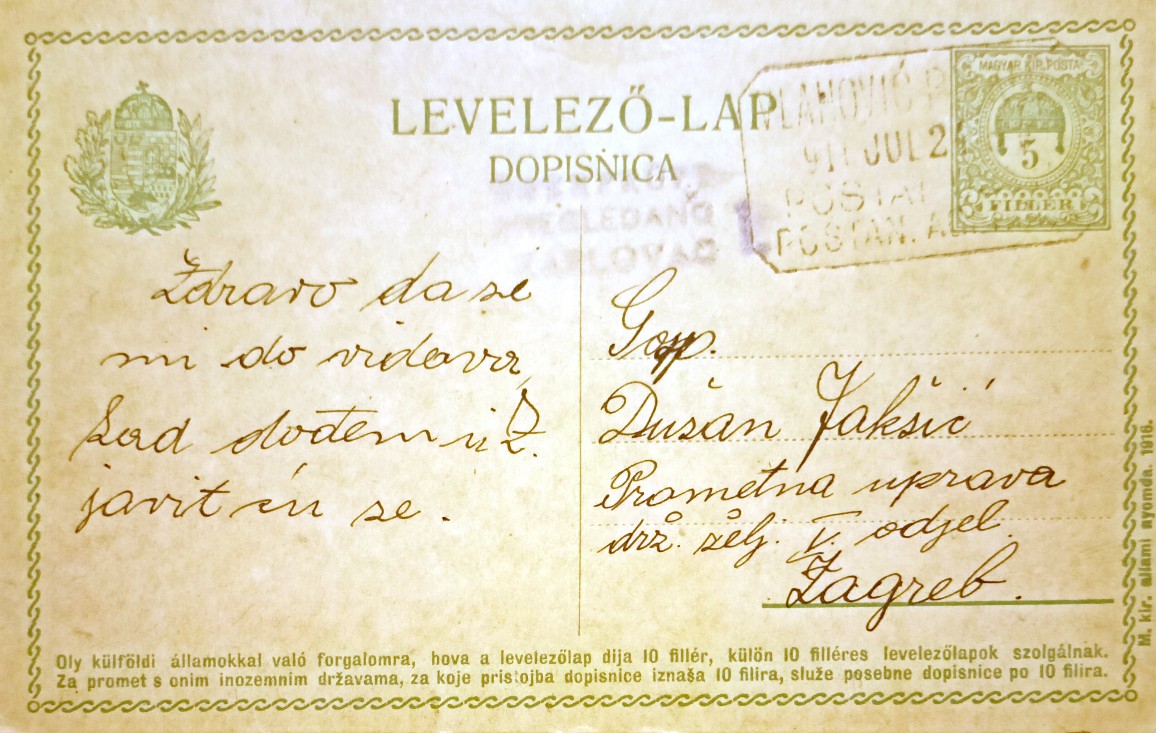 LEVELEZŐ-LAP
DOPISNICA
MAGYAR KIR. POSTA
5
FILLÉR
JUL 2
POSTAN.
KARLOVAC
Zdravo da se
mi do viđava
Sad dođem u Z.
javit ću se.
Gosp.
Dušan Jakšić
Prometna uprava
drž. želj. V. odjel.
Zagreb.
Oly külföldi államokkal való forgalomra, hova a levelezőlap dija 10 fillér, külön 10 filléres levelezőlapok szolgálnak.
Za promet s onim inozemnim državama, za koje pristojba dopisnice iznaša 10 filira, služe posebne dopisnice po 10 filira.
M. kir. állami nyomda. 1916.